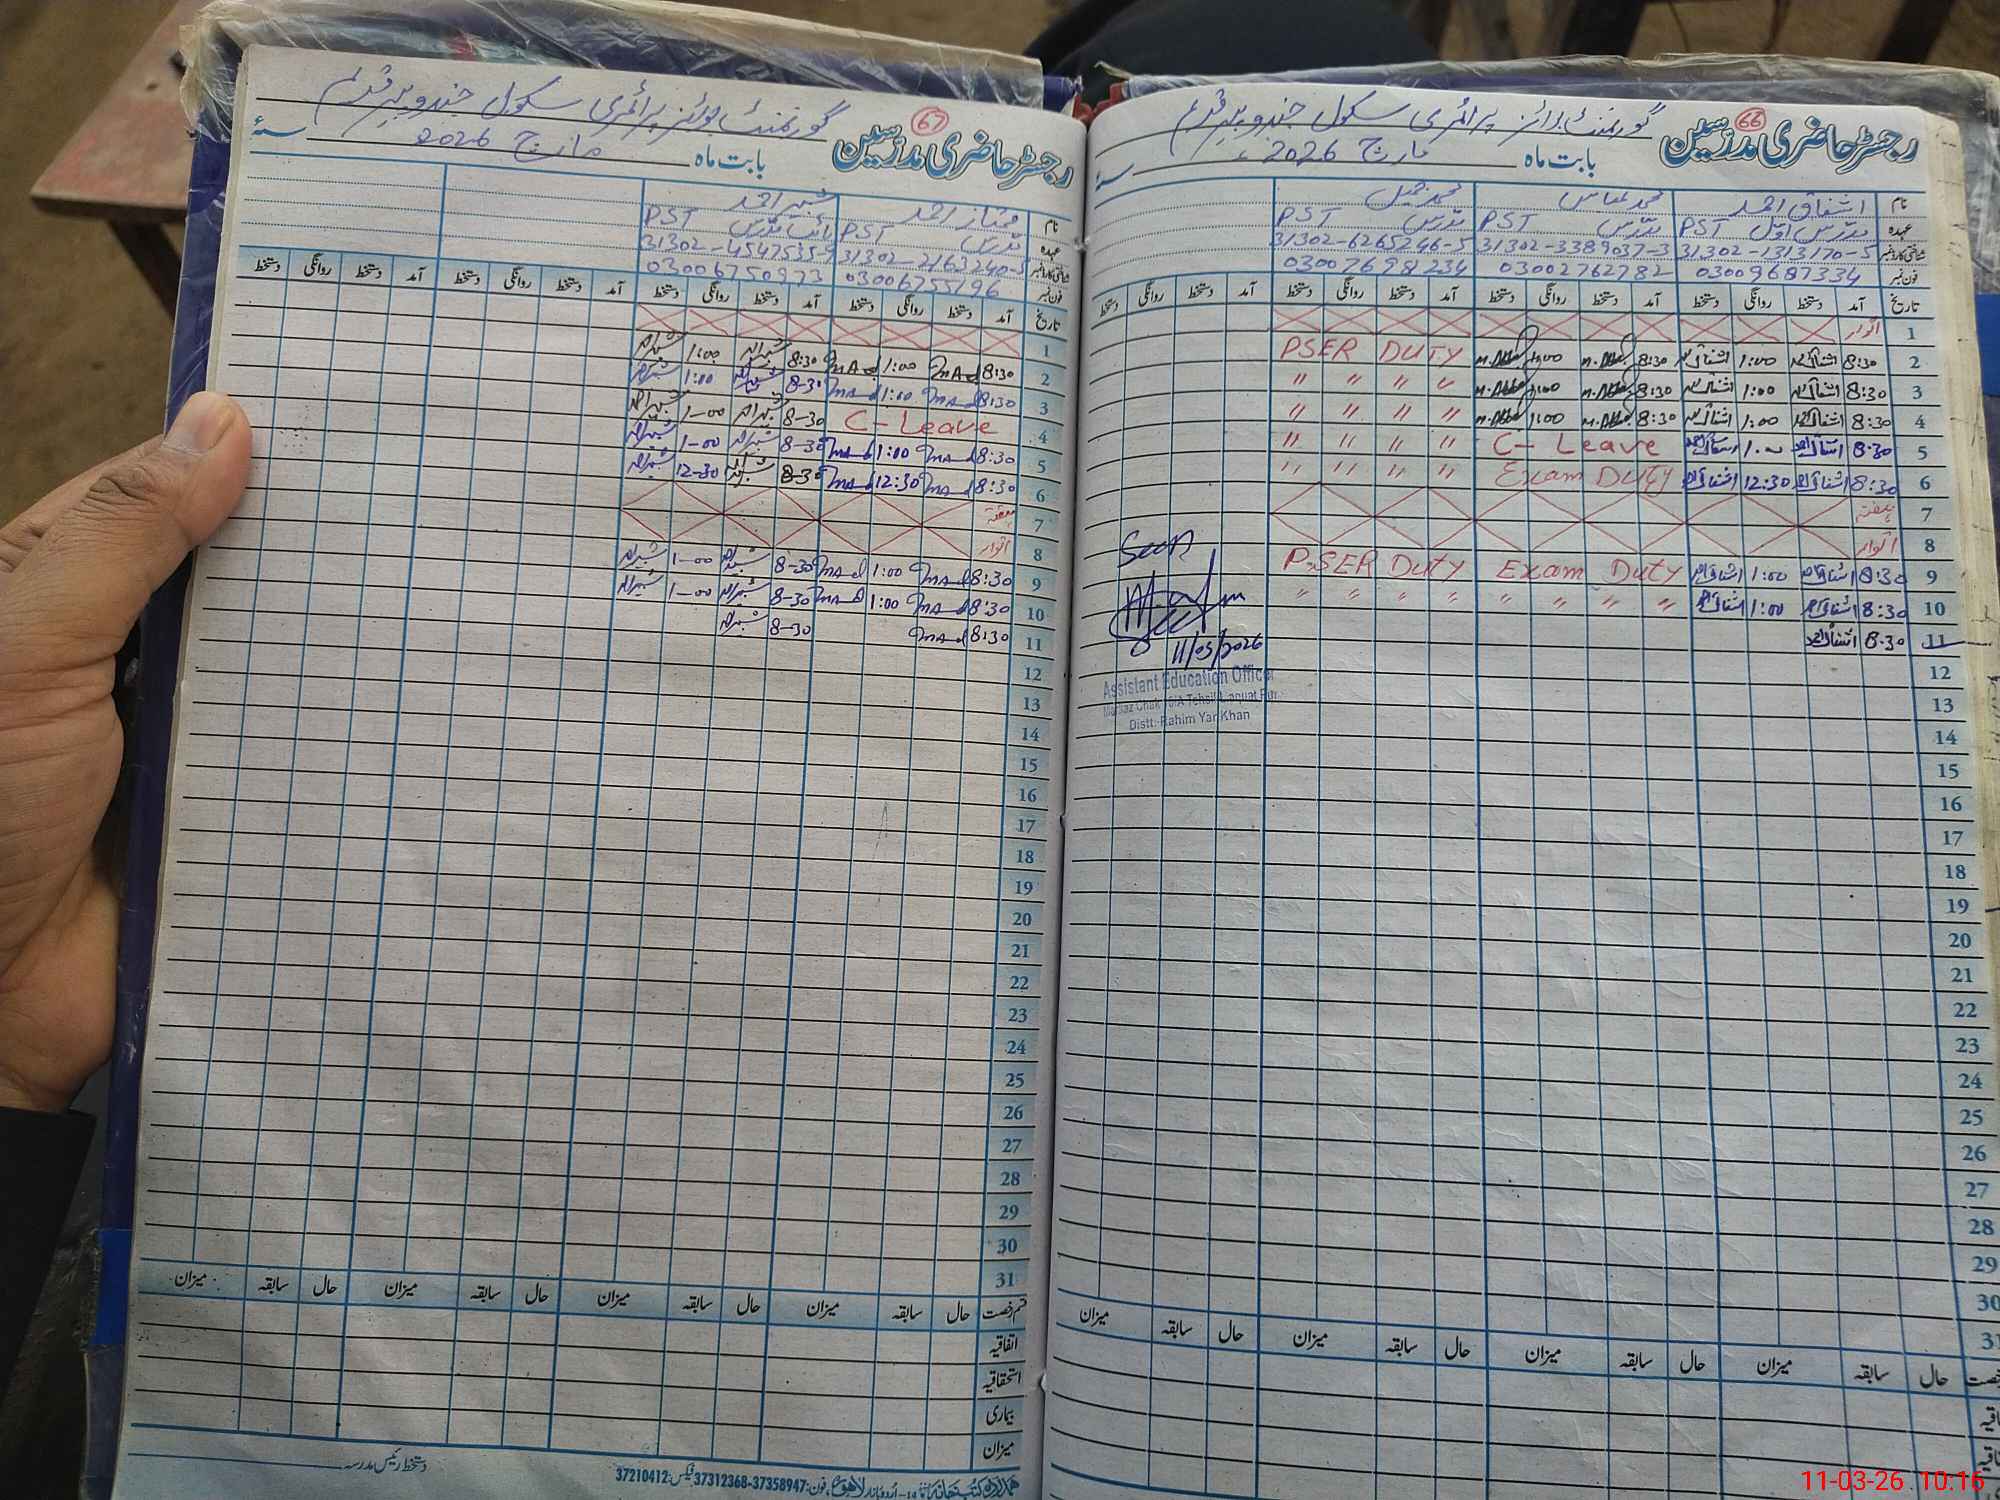 رجسٹر حاضری مدرسین
66
گورنمنٹ بوائز پرائمری سکول جندو پیر قدیم
بابت ماہ مارچ 2026 سنہ
نام اشفاق احمد محمد عباس محمد جمیل
عہدہ مدرس اول PST مدرس PST مدرس PST
شناختی کارڈ نمبر 31302-1313170-5 31302-3389037-3 31302-6265246-5
فون نمبر 03009687334 03002762782 03007698234
تاریخ آمد دستخط روانگی دستخط آمد دستخط روانگی دستخط آمد دستخط روانگی دستخط آمد دستخط روانگی دستخط
1 اتوار
2 8:30 اشفاق احمد 1:00 اشفاق احمد 8:30 M.Abbas 1:00 M.Abbas PSER DUTY
3 8:30 اشفاق احمد 1:00 اشفاق احمد 8:30 M.Abbas 1:00 M.Abbas " " " "
4 8:30 اشفاق احمد 1:00 اشفاق احمد 8:30 M.Abbas 1:00 M.Abbas " " " "
5 8:30 اشفاق احمد 1:00 اشفاق احمد C- Leave " " " "
6 8:30 اشفاق احمد 12:30 اشفاق احمد Exam DUTY " " " "
7 ہفتہ
8 اتوار
9 8:30 اشفاق احمد 1:00 اشفاق احمد Exam Duty PSER Duty
10 8:30 اشفاق احمد 1:00 اشفاق احمد " " " " " " " "
11 8:30 اشفاق احمد
Seen
11/03/2026
Assistant Education Officer
Distt: Rahim Yar Khan
12
13
14
15
16
17
18
19
20
21
22
23
24
25
26
27
28
29
30
31
حال سابقہ میزان حال سابقہ میزان حال سابقہ میزان حال سابقہ میزان
رجسٹر حاضری مدرسین
67
گورنمنٹ بوائز پرائمری سکول جندو پیر قدیم
بابت ماہ مارچ 2026 سنہ
نام ممتاز احمد شبیر احمد
عہدہ مدرس PST نائب مدرس PST
شناختی کارڈ نمبر 31302-2163240-5 31302-4547535-9
فون نمبر 03006755196 03006750973
تاریخ آمد دستخط روانگی دستخط آمد دستخط روانگی دستخط آمد دستخط روانگی دستخط آمد دستخط روانگی دستخط
1
2 8:30 1:00 8:30 شبیر احمد 1:00 شبیر احمد
3 8:30 1:00 8-30 شبیر احمد 1:00 شبیر احمد
4 C- Leave 8-30 شبیر احمد 1-00 شبیر احمد
5 8:30 1:00 8-30 شبیر احمد 1-00 شبیر احمد
6 8:30 12:30 8-30 شبیر احمد 12-30 شبیر احمد
7 ہفتہ
8 اتوار
9 8:30 1:00 8-30 شبیر احمد 1-00 شبیر احمد
10 8:30 1:00 8-30 شبیر احمد 1-00 شبیر احمد
11 8:30 8-30 شبیر احمد
12
13
14
15
16
17
18
19
20
21
22
23
24
25
26
27
28
29
30
31
قسم رخصت حال سابقہ میزان حال سابقہ میزان حال سابقہ میزان حال سابقہ میزان
اتفاقیہ
استحقاقیہ
بیماری
میزان
دستخط رئیس مدرسہ
اُردو بازار لاہور، فون: 37358947-37312368 فیکس: 37210412
11-03-26 10:16